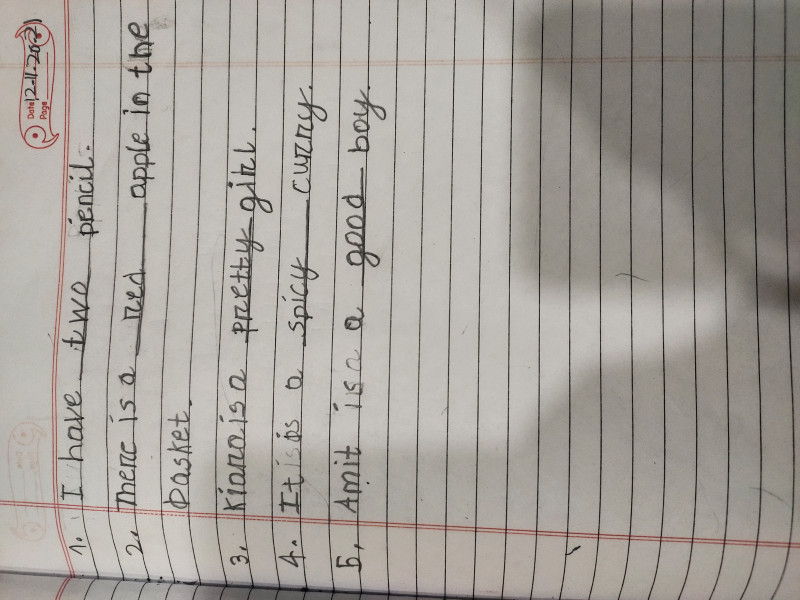 Date 12-11-2021
Page
1. I have two pencil.
2. There is a red apple in the
Basket.
3. Kiara is a pretty girl.
4. It is is a spicy curry.
5, Amit is a a good boy.